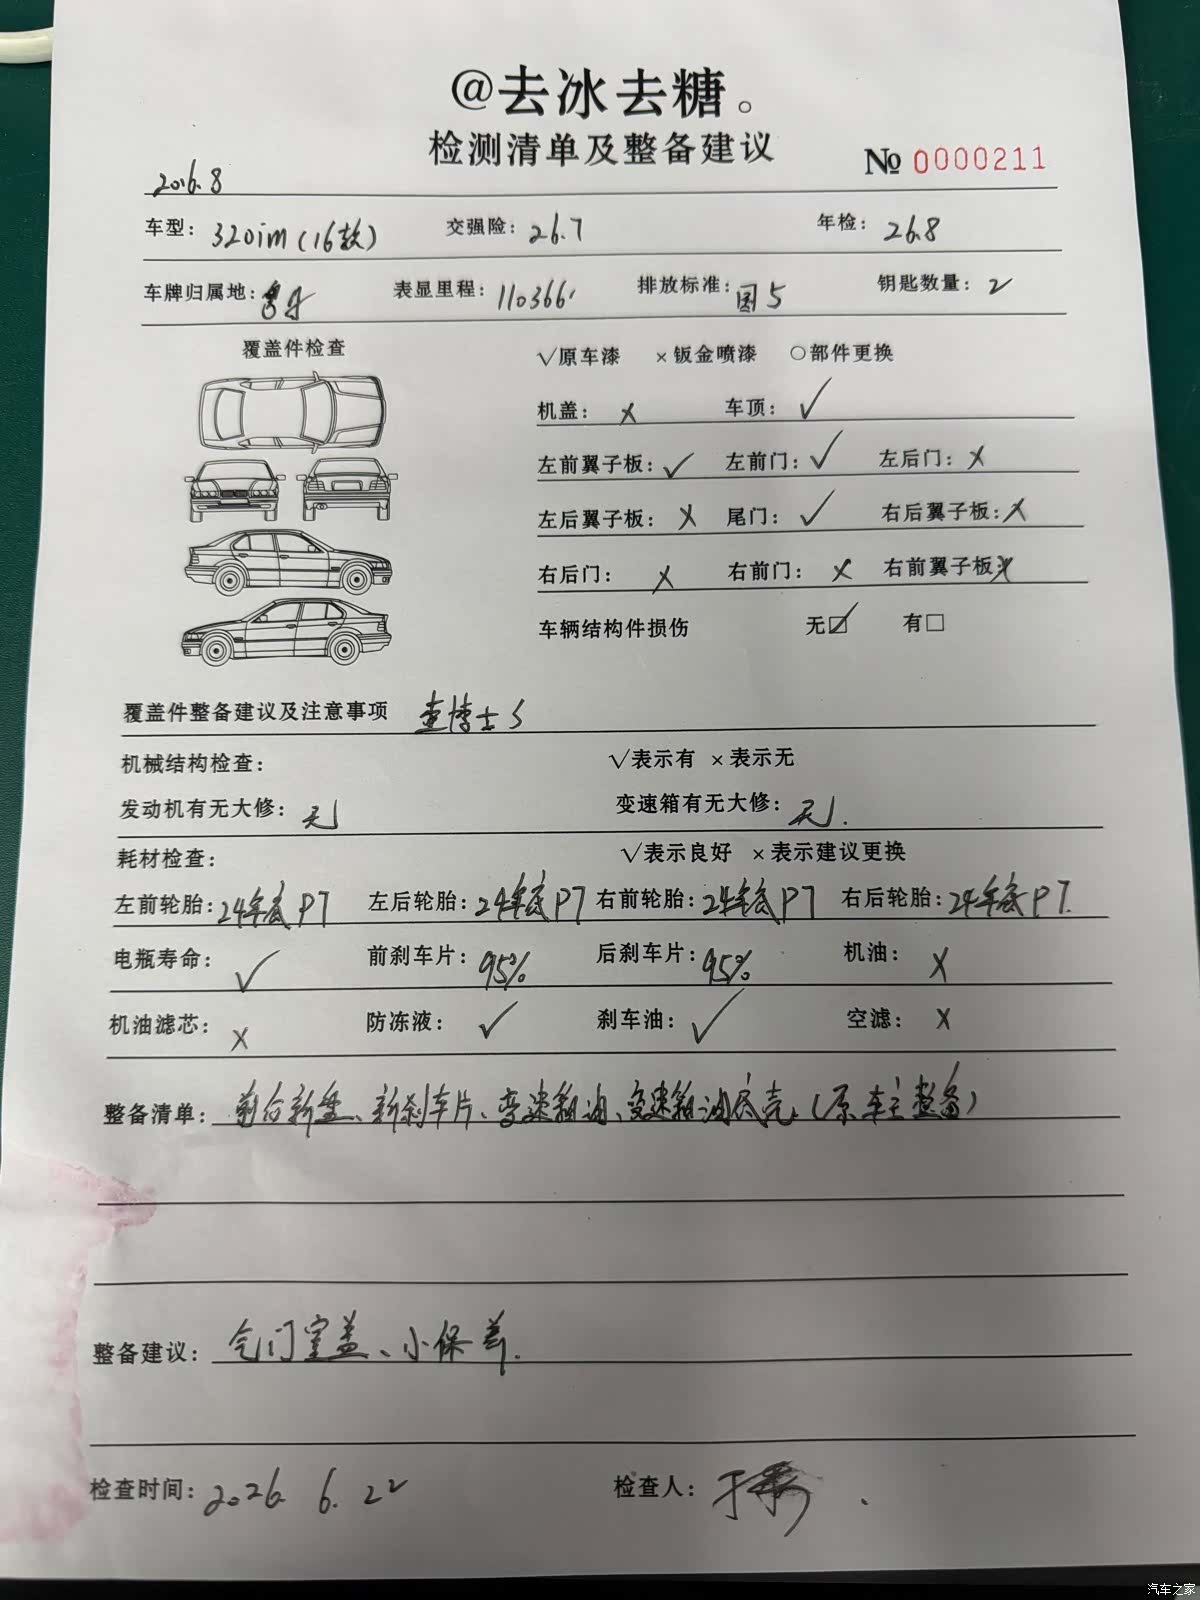 @去冰去糖。
检测清单及整备建议
№ 0000211
2016.8
车型: 320im(16款) 交强险: 26.7 年检: 26.8
车牌归属地: 表显里程: 110366 排放标准: 国5 钥匙数量: 2
覆盖件检查 √原车漆 ×钣金喷漆 ○部件更换
机盖: × 车顶: √
左前翼子板: √ 左前门: √ 左后门: ×
左后翼子板: × 尾门: √ 右后翼子板: ×
右后门: × 右前门: × 右前翼子板: ×
车辆结构件损伤 无☑ 有□
覆盖件整备建议及注意事项 查博士S
机械结构检查: √表示有 ×表示无
发动机有无大修: 无 变速箱有无大修: 无.
耗材检查: √表示良好 ×表示建议更换
左前轮胎: 24年底P7 左后轮胎: 24年底P7 右前轮胎: 24年底P7 右后轮胎: 24年底P7.
电瓶寿命: √ 前刹车片: 95% 后刹车片: 95% 机油: ×
机油滤芯: × 防冻液: √ 刹车油: √ 空滤: ×
整备清单: 前后新盘、新刹车片、变速箱油、变速箱油底壳。(原车主整备)
整备建议: 气门室盖、小保养.
检查时间: 2026. 6. 22 检查人:
汽车之家